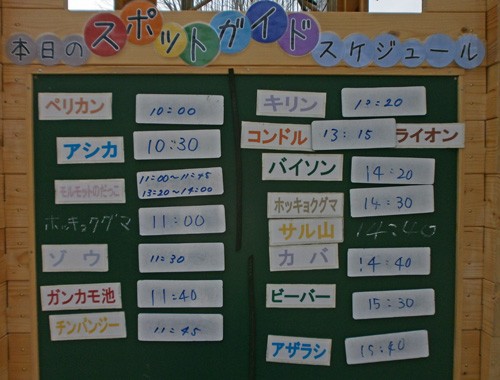 本日のスポットガイドスケジュール
ペリカン 10:00
アシカ 10:30
モルモットのだっこ 11:00〜11:45
13:20〜14:00
ホッキョクグマ 11:00
ゾウ 11:30
ガンカモ池 11:40
チンパンジー 11:45
キリン
コンドル 13:15 ライオン
バイソン 14:20
ホッキョクグマ 14:30
サル山 14:40
カバ 14:40
ビーバー 15:30
アザラシ 15:40